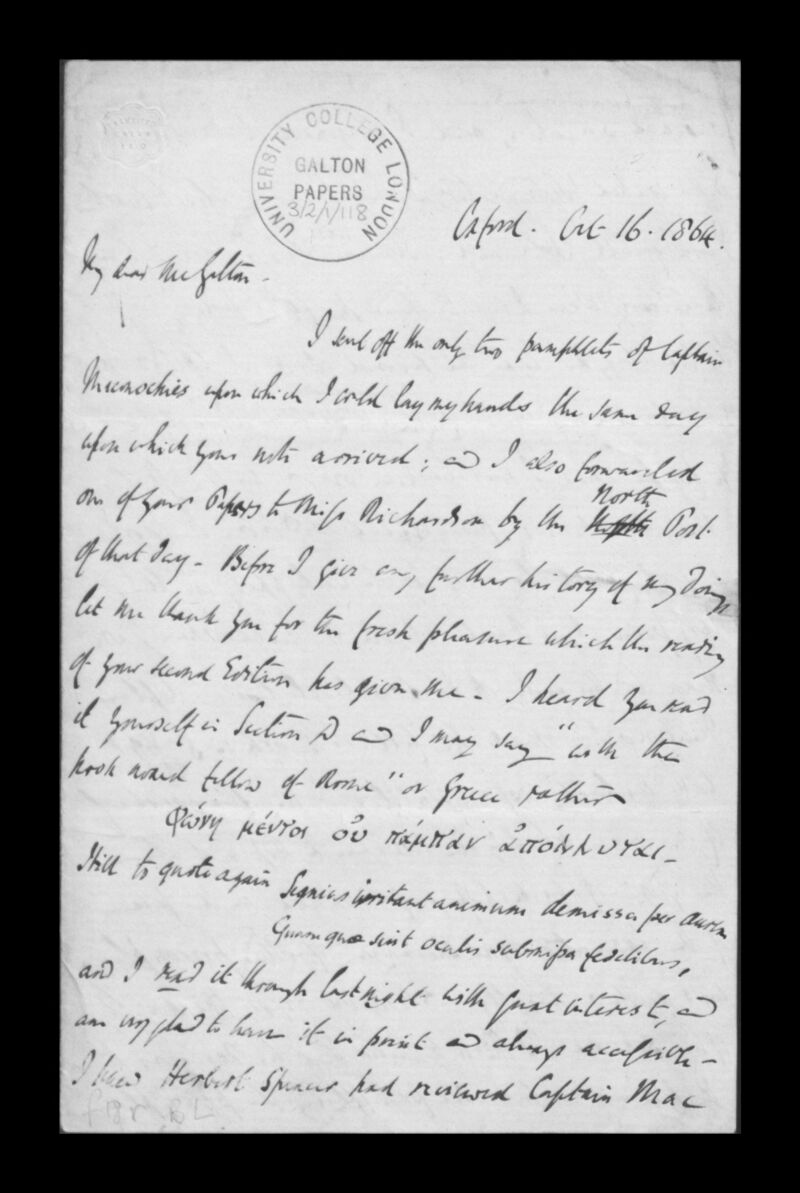 UNIVERSITY COLLEGE LONDON
GALTON
PAPERS
3/2/1/118
Oxford. Oct 16. 1864.
My dear Mr Galton -
I sent off the only two pamphlets of Captain
Maconochies upon which I could lay my hands the same day
upon which your note arrived; and I also forwarded
one of your Papers to Miss Richardson by the North Post
of that day - Before I give any further history of my doings
let me thank you for the fresh pleasure which the reading
of your second Edition has given me - I heard you read
it yourself in Section D and I may say "with the
hook nosed fellow of Rome" or Greece rather
Φώνη μέντοι οὔ πάμπαν ἀπόλλυται -
Still to quote again Segnius irritant animum demissa per aurem
Quam quæ sint oculis submissa fidelibus,
and I read it through last night with great interest, and
am very glad to have it in print and always accessible -
I knew Herbert Spencer had reviewed Captain Mac